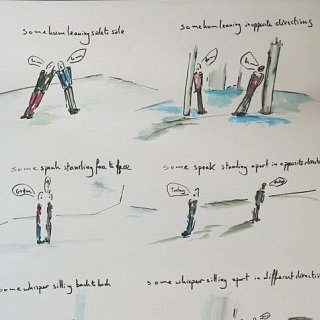 some hum leaning side to side
some hum leaning in opposite directions
hm
hm
hm
hm
some speak standing face to face
some speak standing apart in opposite directi
Today
some whisper sitting back to back
some whisper sitting apart in different directions